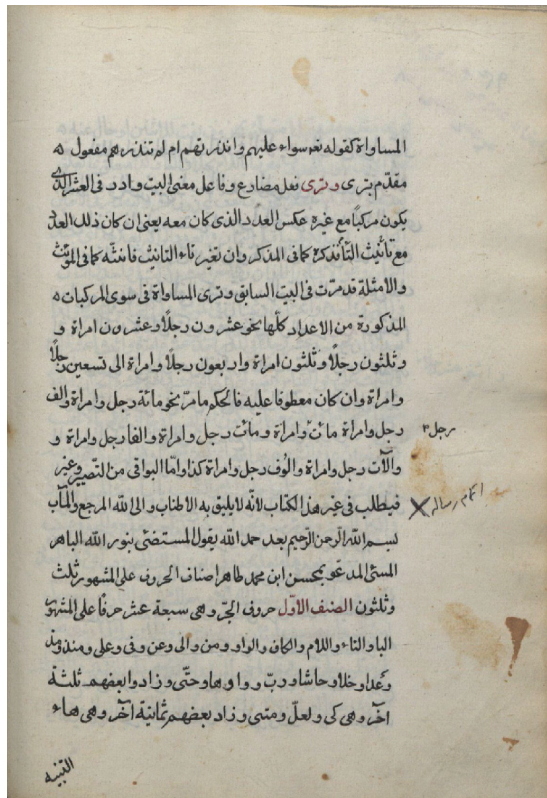 المساواة كقوله تعـ سواء عليهم واندرتهم ام لم تنذرهم مفعول ه
مقدّم يترى وترى فعل مضارع وفاعل معنى البيت وادد فى العشر الذى
يكون مركبًا مع غيره عكس العدد الذى كان معه يعنى ان كان ذلك العدد
مع تأنيث التا فذكره كما فى المذكر وان بغير تاء التانيث فانثه كما فى المؤنث
والامثلة قد مرّت فى البيت السابق وترى المساواة فى سوى المركبات ه
المذكورة من الاعداد كلّها نحو عشرون رجلًا وعشرون امراة و
وثلثون رجلًا وثلثون امراة واربعون رجلًا وامراة الى تسعين رجلًا
وامراة وان كان معطوفا عليه فالحكم ما مرّ نحو مائة رجل وامراة والف
رجل وامراة مائتا وامراة ومائت رجل وامراة والفا رجل وامراة و
رجل ٣
والآت رجل وامراة والوف رجل وامراة كذا وامّا البواقى من التصير وغير
فيطلب فى غير هذا الكتاب لانّه لا يليق به الاطناب والى الله المرجع والمآب
اتمام رساله
بسم الله الرحمن الرّحيم بعد حمد الله يقول المستضئ بنور الله الباهر
المسئ المدعوّ بمحسن ابن محمد طاهر اصناف الحروف على المشهور ثلث
وثلثون الصنف الاوّل حروف الجرّ وهى سبعة عشر حرفا على المشهور
البا والتاء واللام والكاف والواو ومن والى وعن وفى وعلى ومنذ ومذ
وعدا وخلا وحاشا وربّ وواوها وحتّى وزادوا بعضهم ثلثة
آخر وهى كى ولعلّ ومتى وزاد بعضهم ثمانية آخر وهى هاء
التنبيه